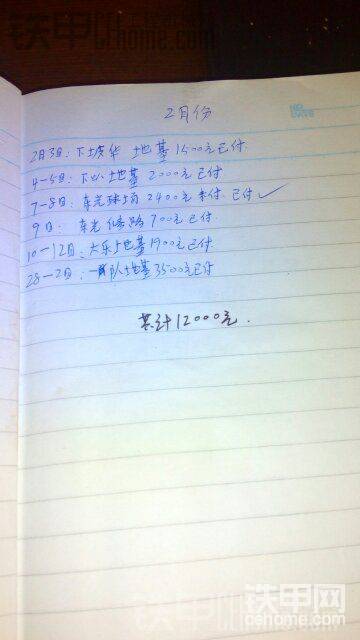 铁甲网
cehome.com
2月份
NO.
DATE
2月3日：下坡华 地基1500元已付
4-5日：下山 地基2000元已付
7-8日：东光球场2400元未付 已付✓
9日：东光修路700元已付
10-12日：大乐地基1900元已付
28-2日：一队地基3500元已付
共计12000元.
铁甲网
cehome.com